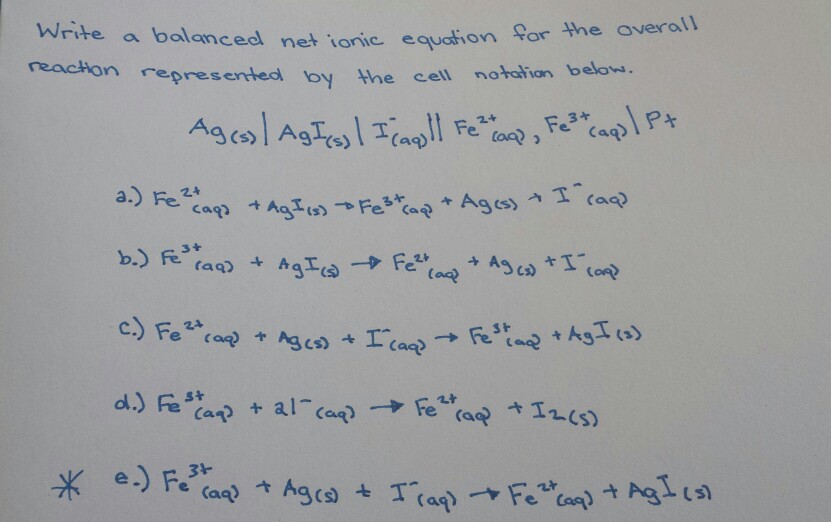 Write a balanced net ionic equation for the overall
reaction represented by the cell notation below.
Ag(s) | AgI(s) | I⁻(aq) || Fe²⁺(aq), Fe³⁺(aq) | Pt
a.) Fe²⁺(aq) + AgI(s) → Fe³⁺(aq) + Ag(s) + I⁻(aq)
b.) Fe³⁺(aq) + AgI(s) → Fe²⁺(aq) + Ag(s) + I⁻(aq)
c.) Fe²⁺(aq) + Ag(s) + I⁻(aq) → Fe³⁺(aq) + AgI(s)
d.) Fe³⁺(aq) + 2I⁻(aq) → Fe²⁺(aq) + I₂(s)
* e.) Fe³⁺(aq) + Ag(s) + I⁻(aq) → Fe²⁺(aq) + AgI(s)